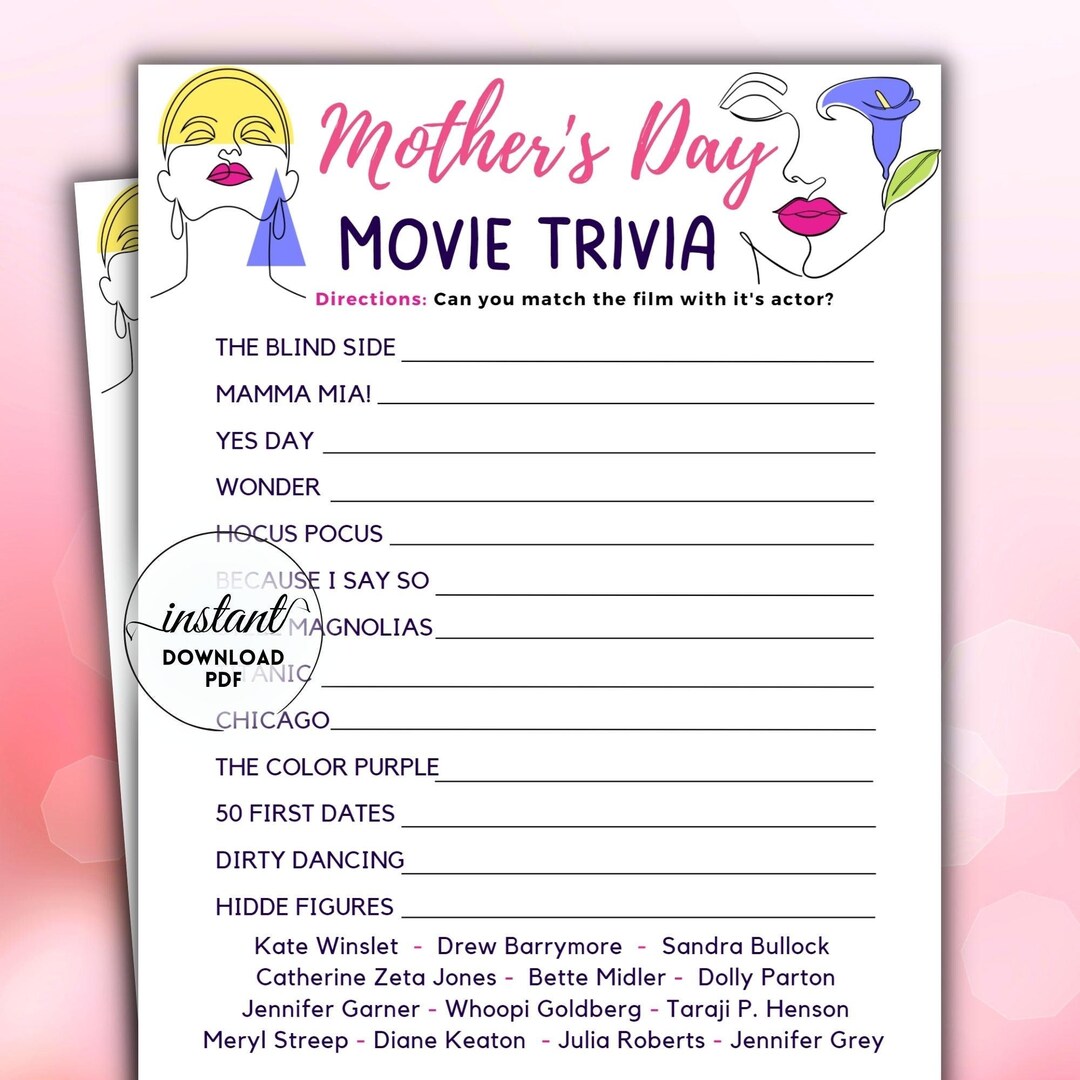 Mother's Day
MOVIE TRIVIA
Directions: Can you match the film with it's actor?
THE BLIND SIDE
MAMMA MIA!
YES DAY
WONDER
HOCUS POCUS
BECAUSE I SAY SO
MAGNOLIAS
instant
DOWNLOAD
PDF
CHICAGO
THE COLOR PURPLE
50 FIRST DATES
DIRTY DANCING
HIDDE FIGURES
Kate Winslet - Drew Barrymore - Sandra Bullock
Catherine Zeta Jones - Bette Midler - Dolly Parton
Jennifer Garner - Whoopi Goldberg - Taraji P. Henson
Meryl Streep - Diane Keaton - Julia Roberts - Jennifer Grey